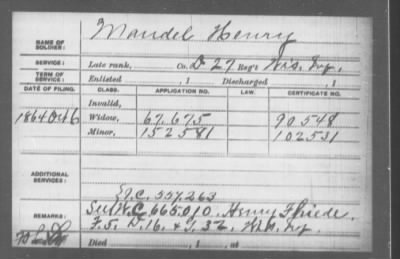 NAME OF SOLDIER: Mandel Henry
SERVICE: Late rank, Co. D 27 Reg't Wis. Inf.
TERM OF SERVICE: Enlisted , 1 Discharged , 1
DATE OF FILING. CLASS. APPLICATION NO. LAW. CERTIFICATE NO.
Invalid,
1864 Oct 6 Widow, 67.675 90548
Minor, 152581 102531
ADDITIONAL SERVICES:
C. 557263
REMARKS: See W.C. 665.010. Henry Thiede.
F. 5. D. 16. & I. 32. Wis. Inf.
Died , 1 at